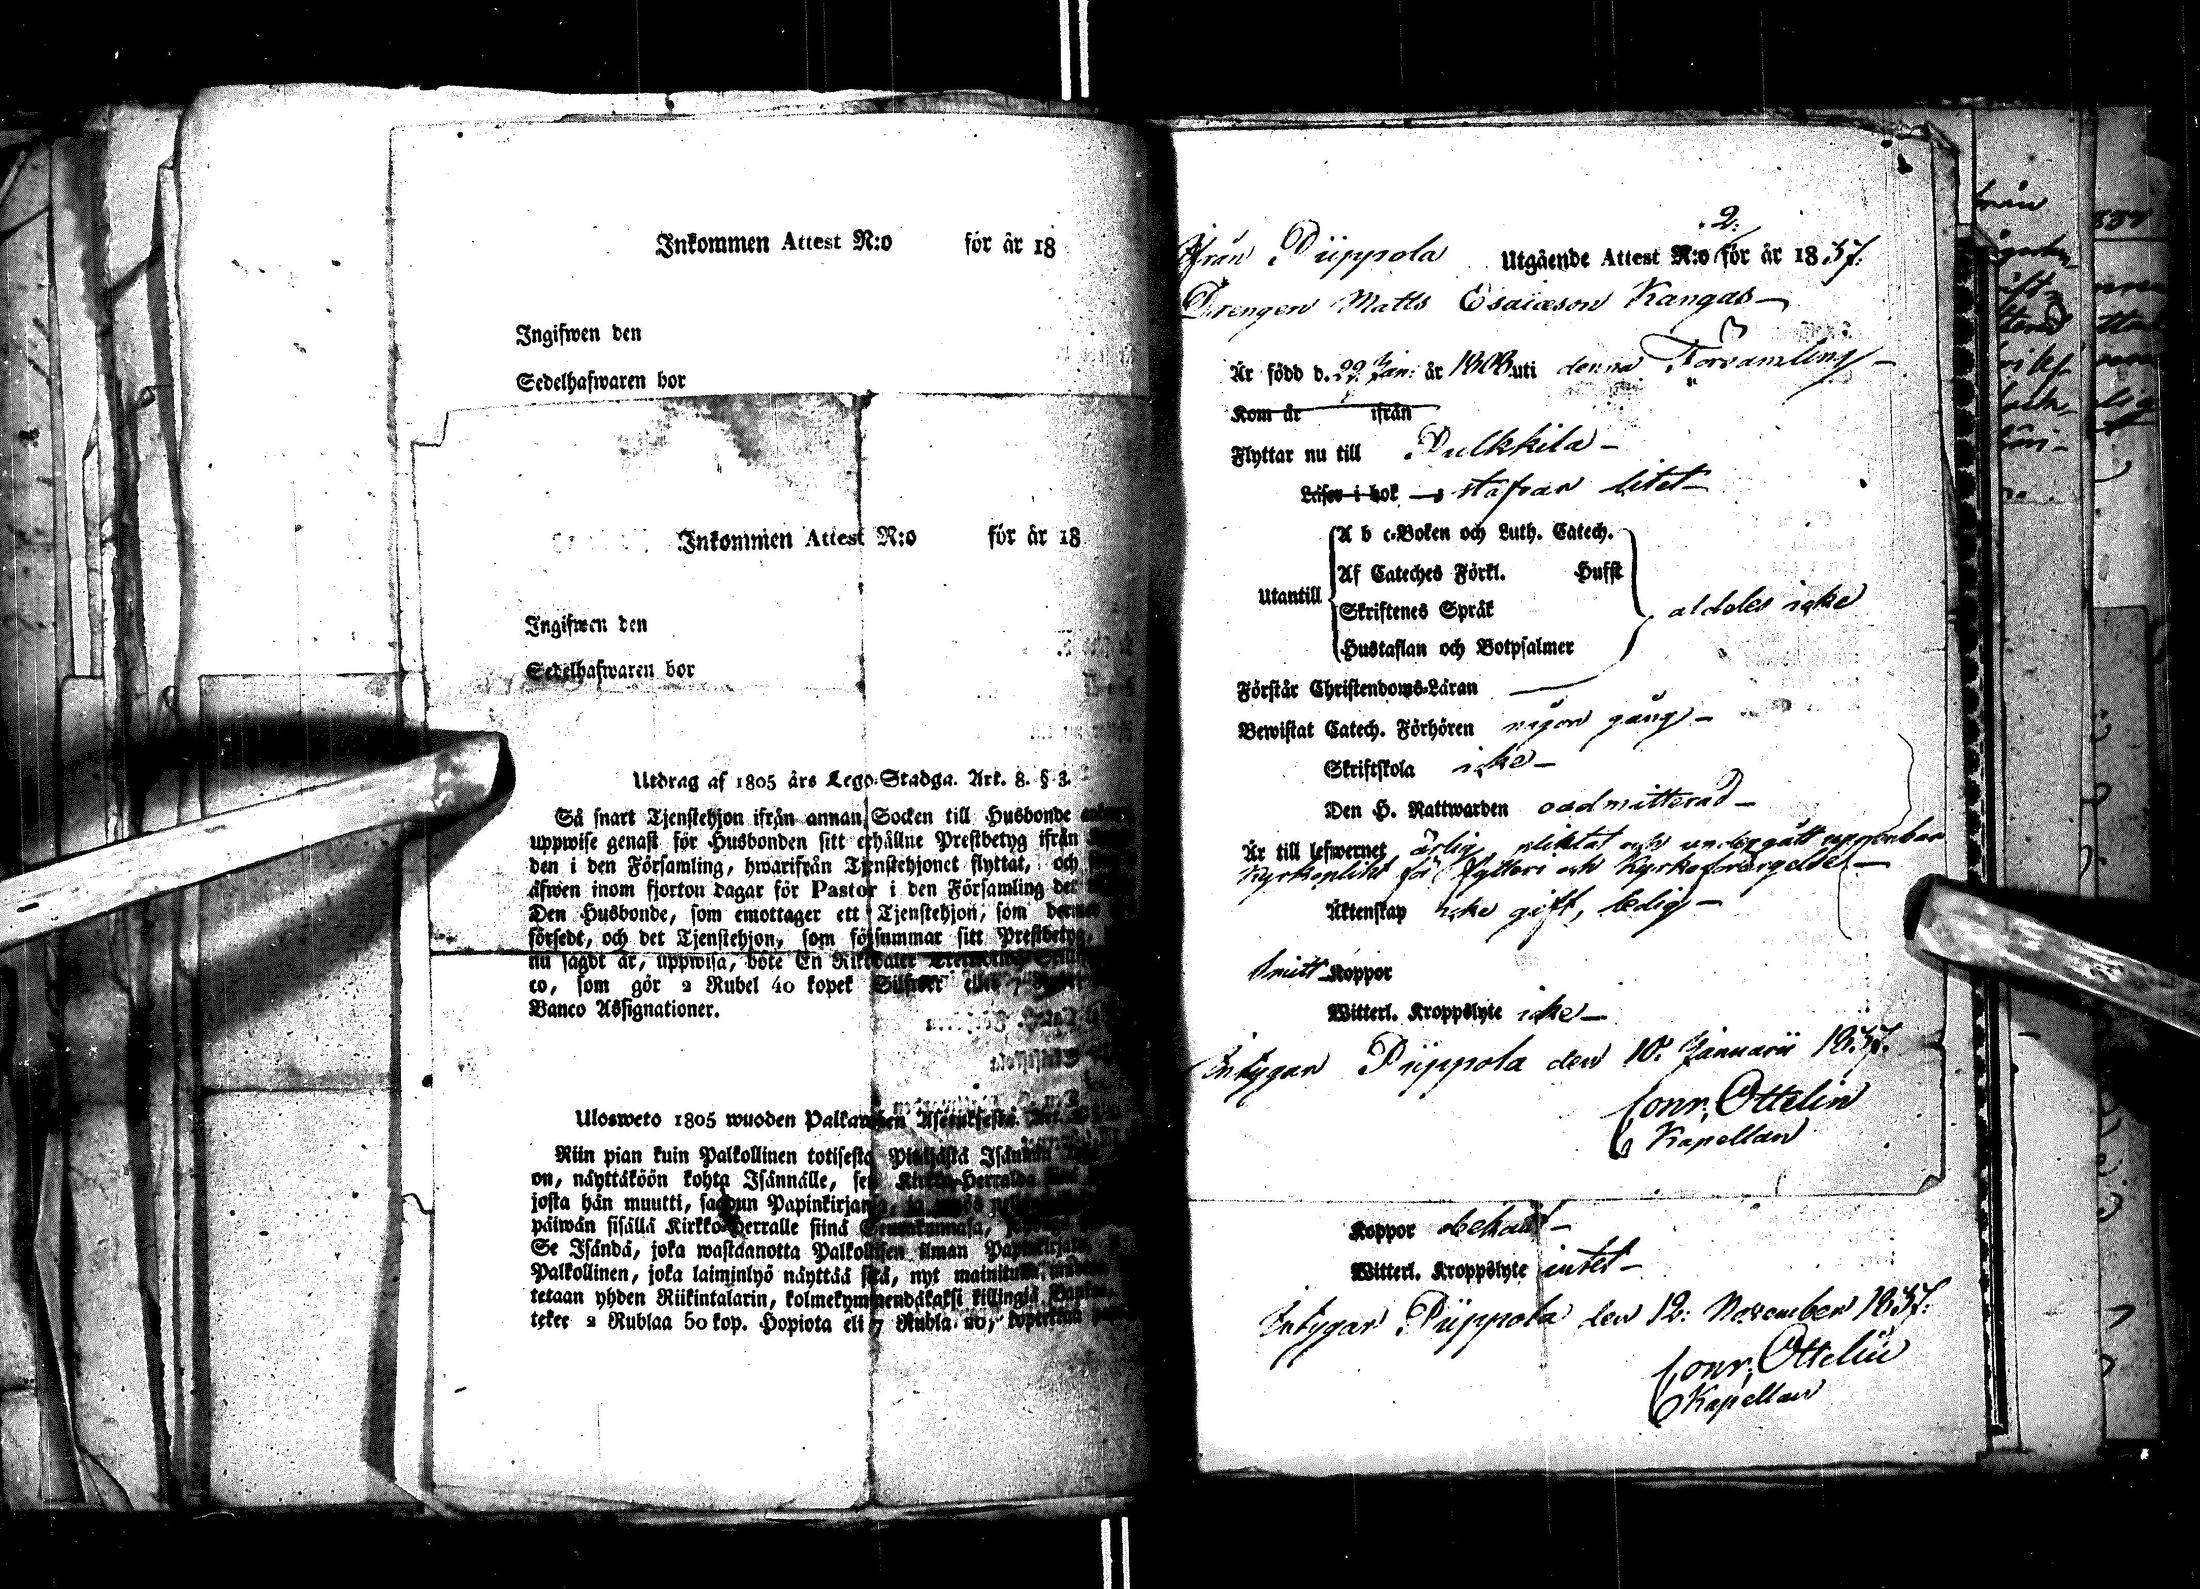 Inkommen Attest N:o för år 18
Ingifwen den
Sedelhafwaren bor
Inkommen Attest N:o för år 18
Ingifwen den
Sedelhafwaren bor
Utdrag af 1805 års Lego-Stadga. Art. 8. § 3.
Så snart Tjenstehjon ifrån annan Socken till Husbonde
uppwise genast för Husbonden sitt erhållne Prestbetyg ifrån
den i den Församling, hwarifrån Tjenstehjonet flyttat, och
äfwen inom fjorton dagar för Pastor i den Församling det
Den Husbonde, som emottager ett Tjenstehjon, som
försedt, och det Tjenstehjon, som försummar sitt Prestbetyg,
nu sagdt är, uppwisa, böte En Riksdaler
co, som gör 2 Rubel 40 kopek Silfwer eller 7
Banco Assignationer.
Ulosweto 1805 wuoden Palkawäen Asetuksesta.
Niin pian kuin Palkollinen totisesta Pitäjästä Isännän
on, näyttäköön kohta Isännälle, sen Kirkko-Herralda
josta hän muutti, saadun Papinkirjansa, ja myös
päiwän sisällä Kirkko-Herralle siinä Seurakunnasa,
Se Isändä, joka wastaanotta Palkollisen ilman Papinkirjata,
Palkollinen, joka laiminlyö näyttää sitä, nyt mainitulla
tetaan yhden Riikintalarin, kolmekymmendäkaksi killingiä Bankos,
tekee 2 Rublaa 50 kop. Hopiota eli 7 Rubla 20,
2.
Ifrån Piippola Utgående Attest N:o för år 1837.
Drengen Matts Esaiæson Kangas
Är född d. 22 Jan: år 1808 uti denna Församling
Kom år ifrån
Flyttar nu till Pulkkila
Läser i bok stafvar litet
A b c-Boken och Luth. Catech.
Af Cateches Förkl. Hufst
Utantill
Skriftenes Språk
aldeles icke
Hustaflan och Botpsalmer
Förstår Christendoms-Läran
Bewistat Catech. Förhören någon gång
Skriftskola icke
Den H. Nattwarden oadmitterad
Är till lefwernet ärlig, pliktat och undergått uppenbar
Kyrkoplikt för fylleri och Kyrkoförargelse
Äktenskap icke gift, ledig
haft Koppor
Witterl. Kroppslyte icke
Intygar Piippola den 10. Januarii 1837.
Conr. Ottelin
Kapellan
Koppor
Witterl. Kroppslyte intet
Intygar Piippola den 12: November 1837.
Conr. Ottelin
Kapellan